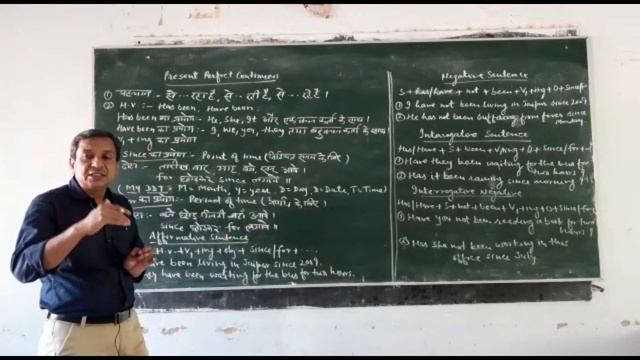 Present Perfect Continuous
① पहचान :- से... रहा है, से... रही है, से... रहे हैं।
② H.V :- Has been, Have been.
Has been का प्रयोग :- He, She, It और एक वचन कर्ता के साथ।
Have been का प्रयोग :- I, We, you, They तथा बहुवचन कर्ता के साथ।
V₁ + ing का प्रयोग
Since का प्रयोग :- Point of time (निश्चित समय के लिए)
Since लगाने॥
M = Month, Y = year, D = Day, D = Date, T = Time)
का प्रयोग :- Period of time (अवधि के लिए)
Since छोड़कर for लगाने॥
Affirmative Sentence
H.V + V₁ + ing + Obj + Since/for + ...
have been living in Jaipur since 2009.
have been waiting for the bus for two hours.
Negative Sentence
S + Has/Have + not + been + V₁ + ing + O + Since/for
① I have not been living in Jaipur since 2009.
② He has not been suffering from fever since Monday.
Interrogative Sentence
Has/Have + S + been + V₁ + ing + O + Since/for +
① Have they been waiting for the bus for two hours?
② Has it been raining since morning?
Interrogative Negative
Has/Have + S + not + been + V₁ + ing + O + Since/for
① Have you not been reading a book for two hours?
② Has she not been working in this
office since July.